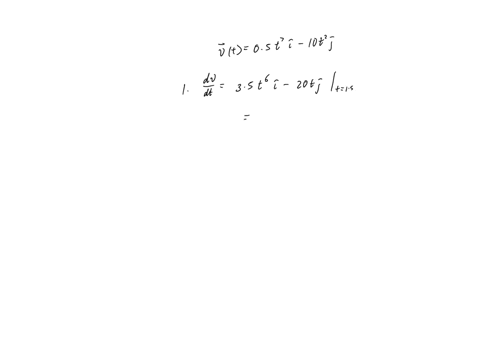 v⃗(t) = 0.5 t⁷ î − 10t² ĵ
1. dv/dt = 3.5 t⁶ î − 20t ĵ |t=1.5
=